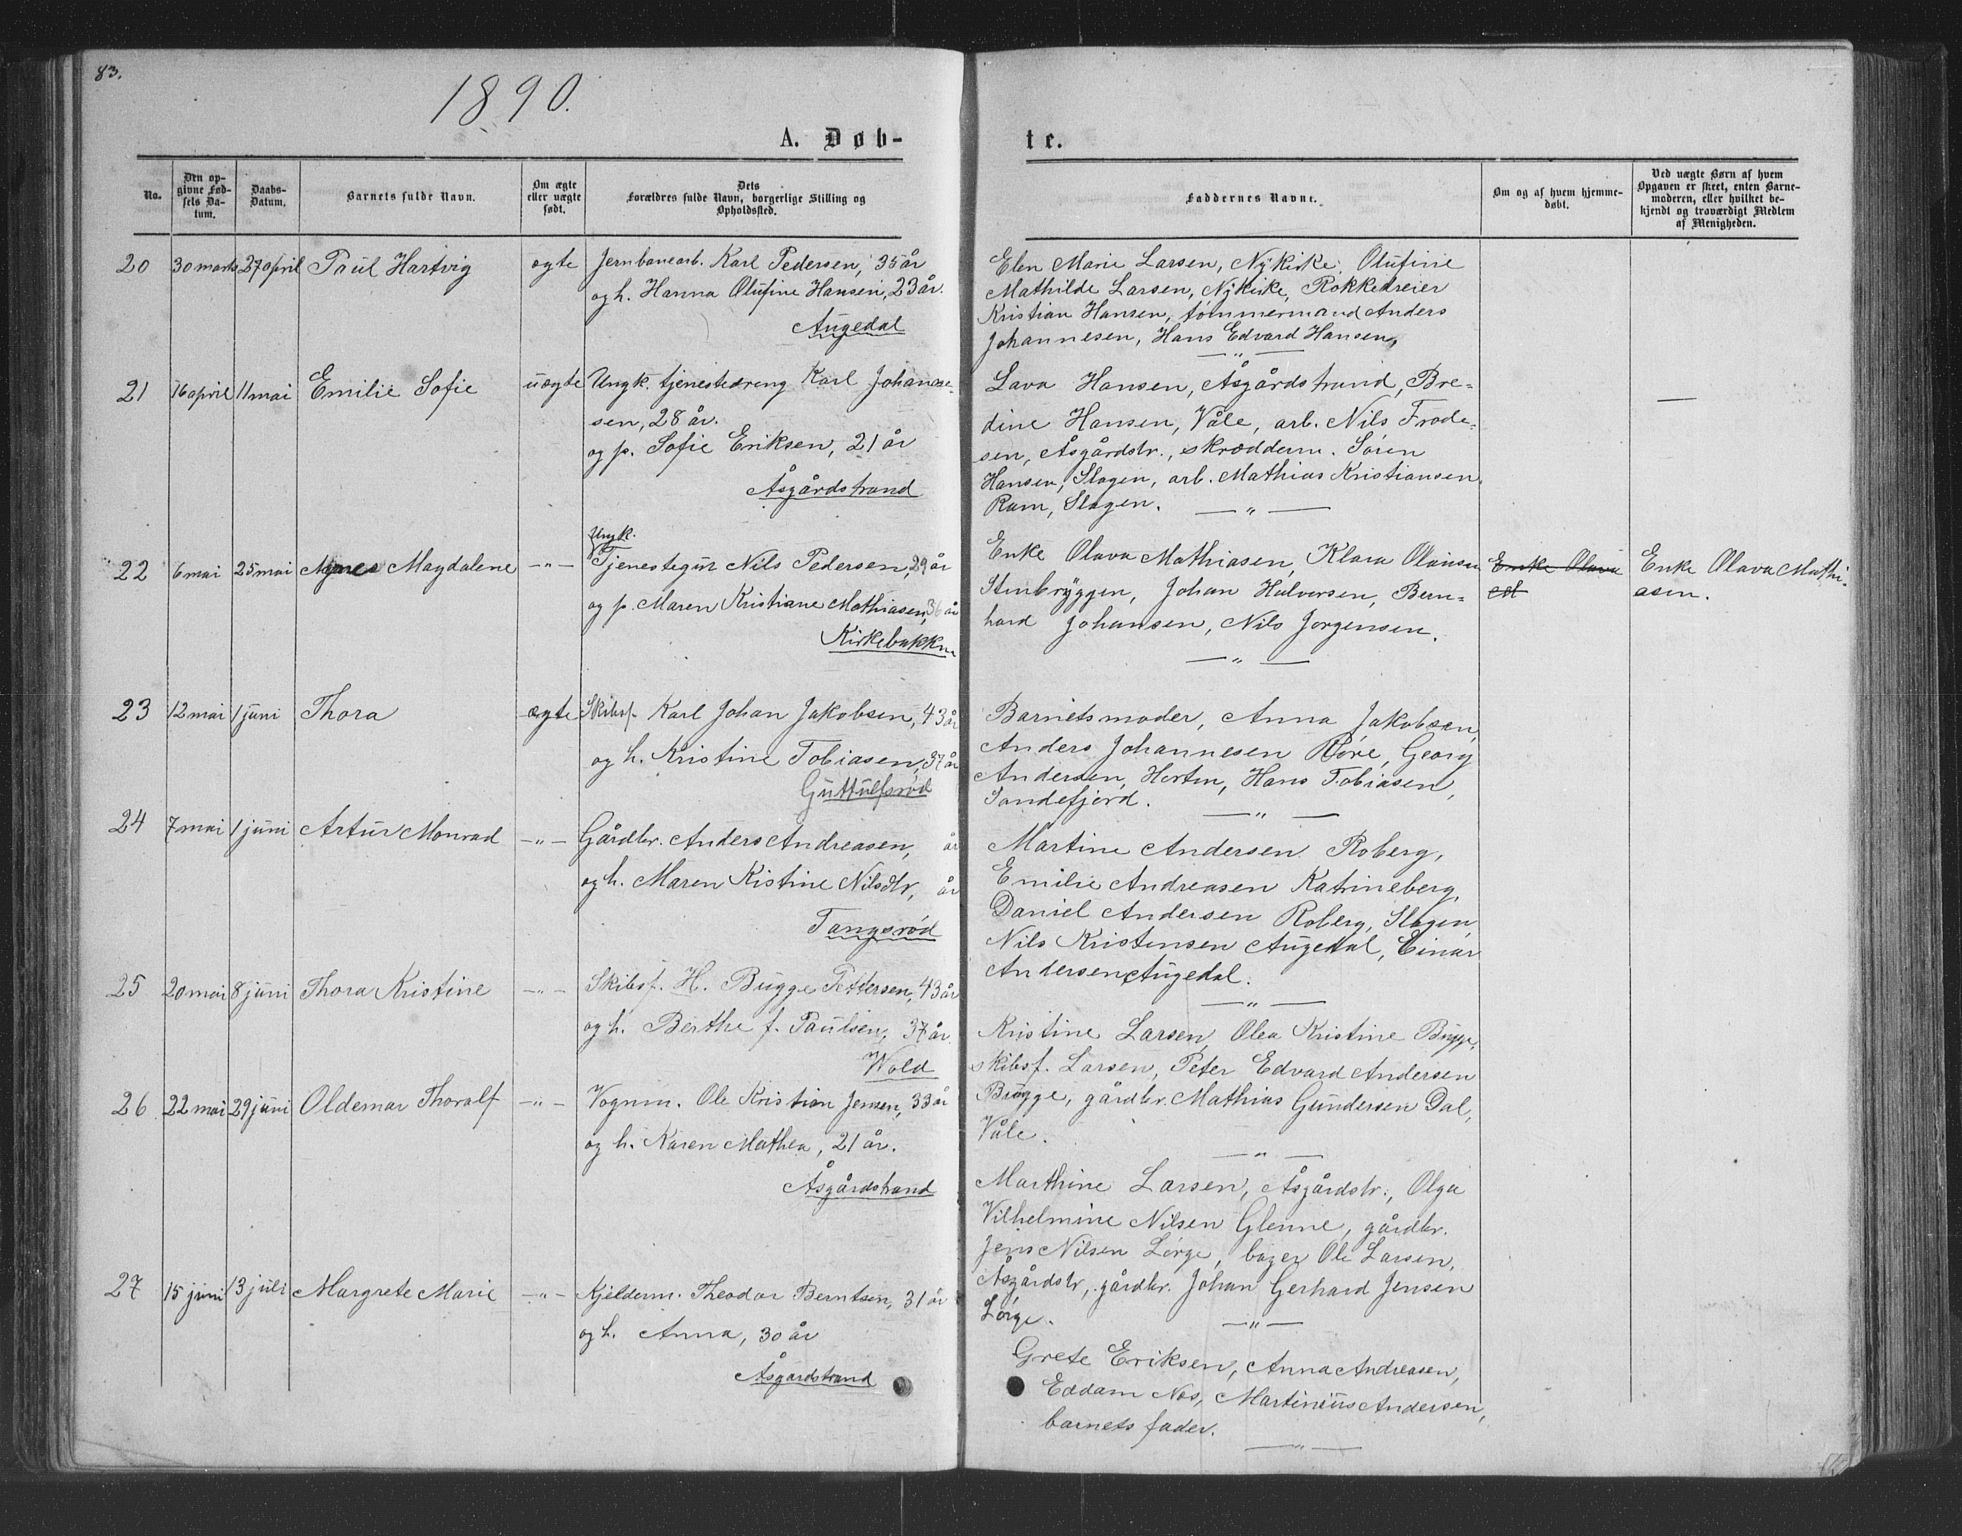 83.
1890.
A. Døb-
No.
Den op-
givne Fød-
sels Da-
tum.
Daabs-
Datum.
Barnets fulde Navn.
Om ægte
eller uægte
født.
Dets
Forældres fulde Navn, borgerlige Stilling og
Opholdssted.
20 30 marts 27 april Paul Hartvig ægte Jernbanearb. Karl Pedersen, 35 år
og h. Hanna Olufine Hansen, 23 år.
Augedal
21 16 april 11 mai Emilie Sofie uægte Ungk. tjenestedreng Karl Johanne-
sen, 28 år.
og p. Sofie Eriksen, 21 år
Åsgårdstrand
Ungk.
22 6 mai 25 mai Agnes Magdalene —"— Tjenestegut Nils Pedersen, 29 år
og p. Maren Kristiane Mathiasen, 36 år
Kirkebakken
23 12 mai 1 juni Thora ægte Skibsf. Karl Johan Jakobsen, 43 år
og h. Kristine Tobiasen, 37 år
Guttulfsrød
24 7 mai 1 juni Artur Monrad —"— Gårdbr. Anders Andreasen, år
og h. Maren Kistine Nilsdtr, år
Tangsrød
25 20 mai 8 juni Thora Kristine —"— Skibsf. H. Bugge Pettersen, 43 år
og h. Berthe f. Paulsen, 37 år.
Wold
26 22 mai 29 juni Oldemar Thoralf —"— Vognm. Ole Kristian Jensen, 33 år
og h. Karen Mathea, 21 år.
Åsgårdstrand
27 15 juni 13 juli Margrete Marie —"— Kjelderm. Theodor Berntsen, 31 år
og h. Anna, 30 år
Åsgårdstrand
te.
Faddernes Navne.
Om og af hvem hjemme-
døbt.
Ved uægte Børn af hvem
Opgaven er skeet, enten Barne-
moderen, eller hvilket be-
kjendt og troværdigt Medlem
af Menigheden.
Elen Marie Larsen, Nykirke, Olufine
Mathilde Larsen, Nykirke, Rokkedreier
Kristian Hansen, tømmermand Anders
Johannesen, Hans Edvard Hansen,
—"—
Lava Hansen, Åsgårdstrand, Bre-
dine Hansen, Våle, arb. Nils Frode-
sen, Åsgårdstr., skrædderm. Søren
Hansen, Slagen, arb. Mathias Kristiansen
Ram, Slagen. —"—
—
Enke Olava Mathiasen, Klara Olausen
Stenbryggen, Johan Halvorsen, Bern-
hard Johansen, Nils Jørgensen.
—"—
Enke Olava
Enke Olava Mathi-
asen.
Barnets moder, Anna Jakobsen,
Anders Johannesen Røre, Georg
Andersen, Horten, Hans Tobiasen,
Sandefjord.
—"—
Martine Andersen Roberg,
Emilie Andreasen Katrineberg,
Daniel Andersen Roberg, Slagen
Nils Kristensen Augedal, Einar
Andersen Augedal.
—"—
Kristine Larsen, Olea Kristine Bugge,
skibsf. Larsen, Peter Edvard Andersen
Bugge, gårdbr. Mathias Gundersen Dal,
Våle.
—"—
Marthine Larsen, Åsgårdstr., Olga
Vilhelmine Nilsen Glenne, gårdbr.
Jens Nilsen Lørge, bager Ole Larsen,
Åsgårdstr., gårdbr. Johan Gerhard Jensen
Lørge.
—"—
Grete Eriksen, Anna Andreasen,
Eddam Nes, Martinius Andersen,
barnets fader.
—"—